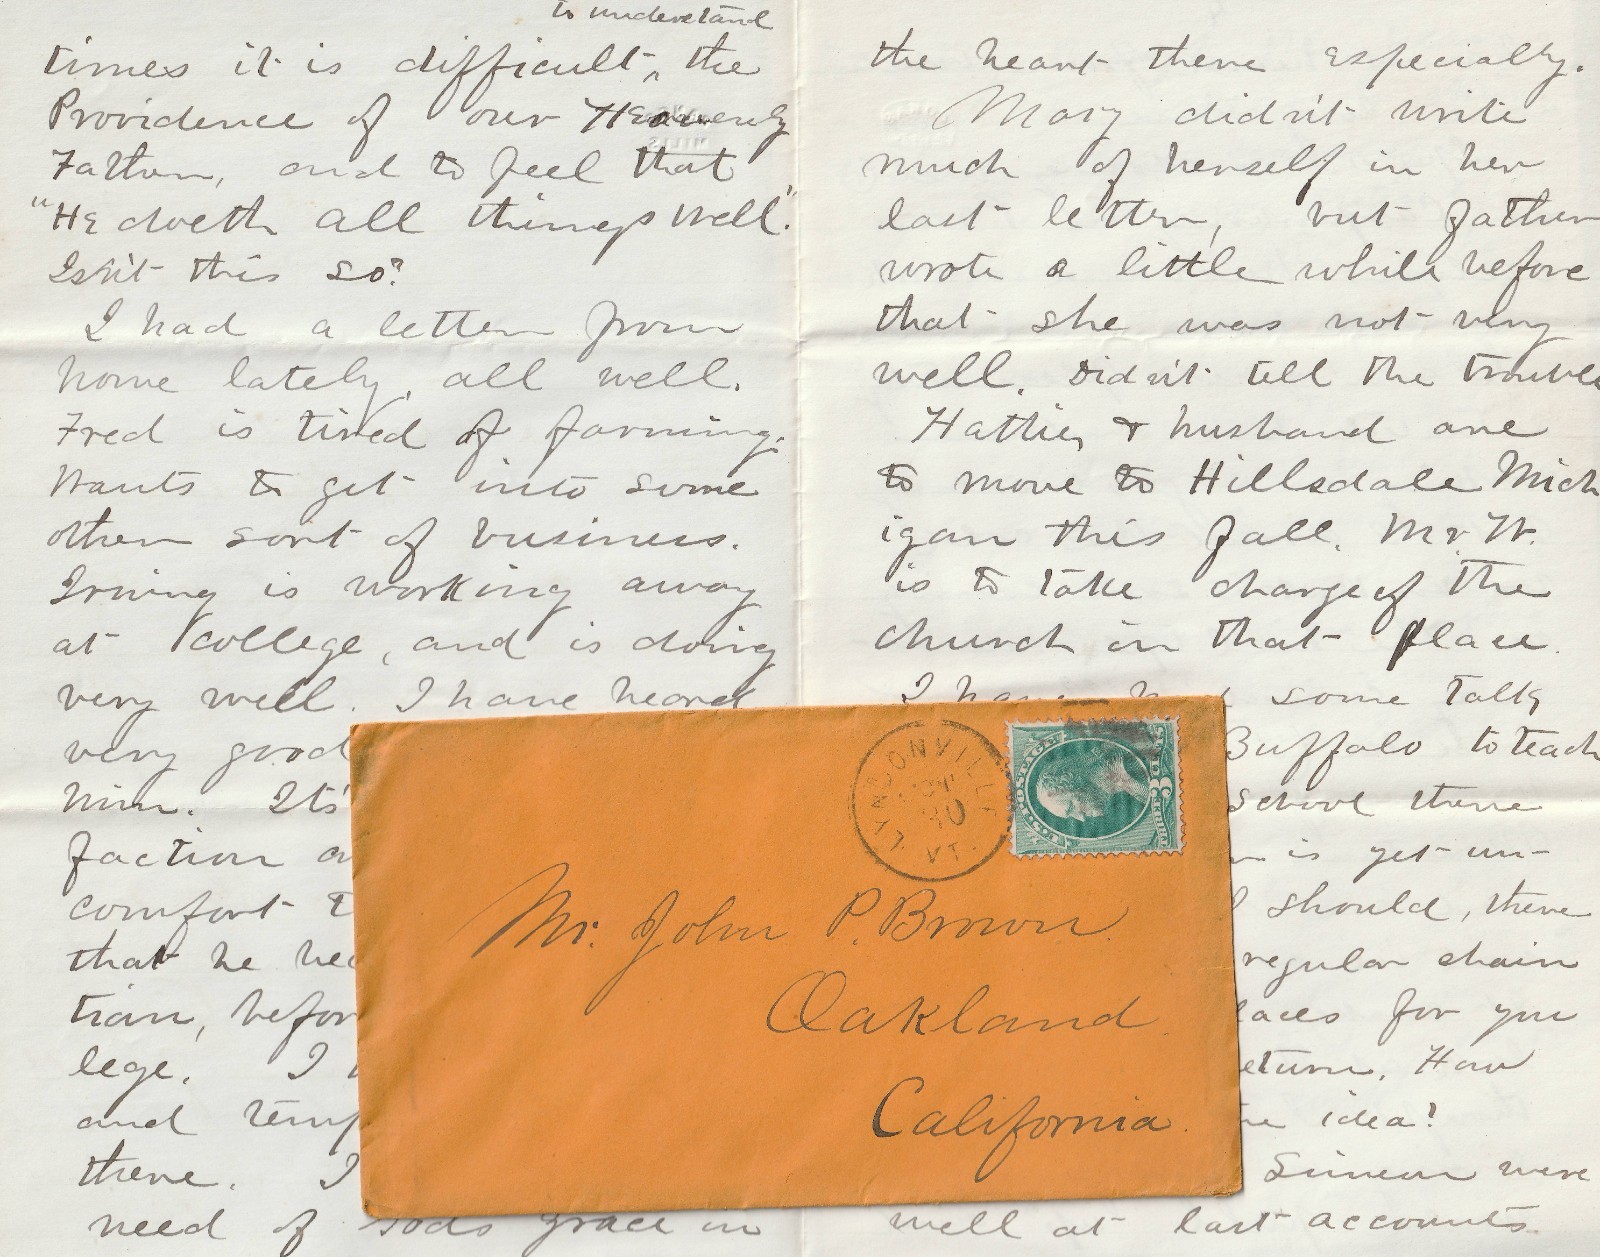 to understand
times it is difficult ^ the
Providence of our Heavenly
Father, and to feel that
"He doeth all things well".
Isn't this so?
I had a letter from
home lately, all well.
Fred is tired of farming.
Wants to get into some
other sort of business.
Irving is working away
at college, and is doing
very well. I have heard
very good
him. It's
faction
comfort
that he
tian, befor
lege. I
and temp
there. I
need of God's grace in
the heart there especially.
Mary didn't write
much of herself in her
last letter, but father
wrote a little while before
that she was not very
well. Didn't tell the trouble
Hattie, & husband are
to move to Hillsdale Mich
igan this fall. Mr. W.
is to take charge of the
church in that place.
I have some talk
Buffalo to teach
school there
is yet un-
I should, there
regular chain
laces for you
eturn. How
idea?
Simeon were
well at last accounts.
LYNDONVILLE
30
VT.
U.S. POSTAGE
3
CENTS
Mr. John P. Brown.
Oakland.
California.